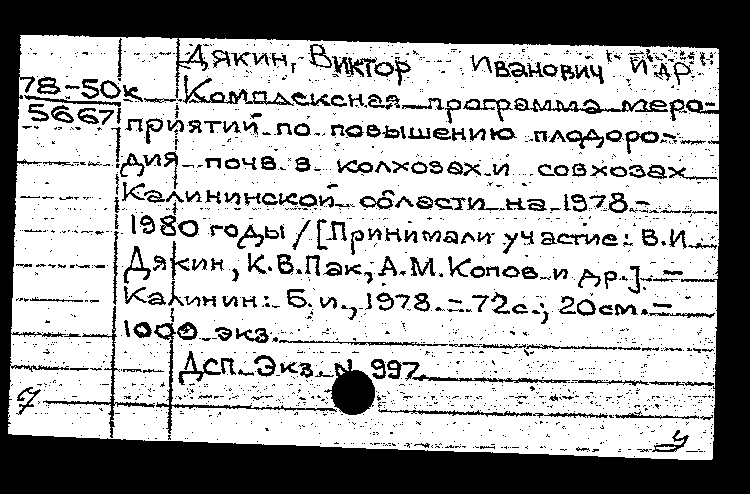 Дякин, Виктор Иванович и др.
78-50к Комплексная программа меро-
5667 приятий по повышению плодоро-
дия почв в колхозах и совхозах
Калининской области на 1978-
1980 годы / [Принимали участие: В.И.
Дякин, К.В.Пак, А.М.Копов и др.]. —
Калинин: Б. и., 1978. - 72с.; 20см. —
1000 экз.
ДСП. Экз. N 997.